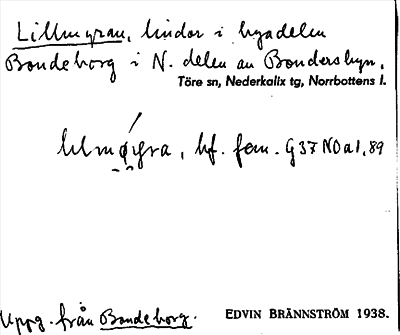 Lillmyran, lindor i byadelen
Bondeborg i N. delen av Bondersbyn.
Töre sn, Nederkalix tg, Norrbottens l.
bf. fem. G37 NO a1, 89
Uppg. från Bondeborg.
EDVIN BRÄNNSTRÖM 1938.